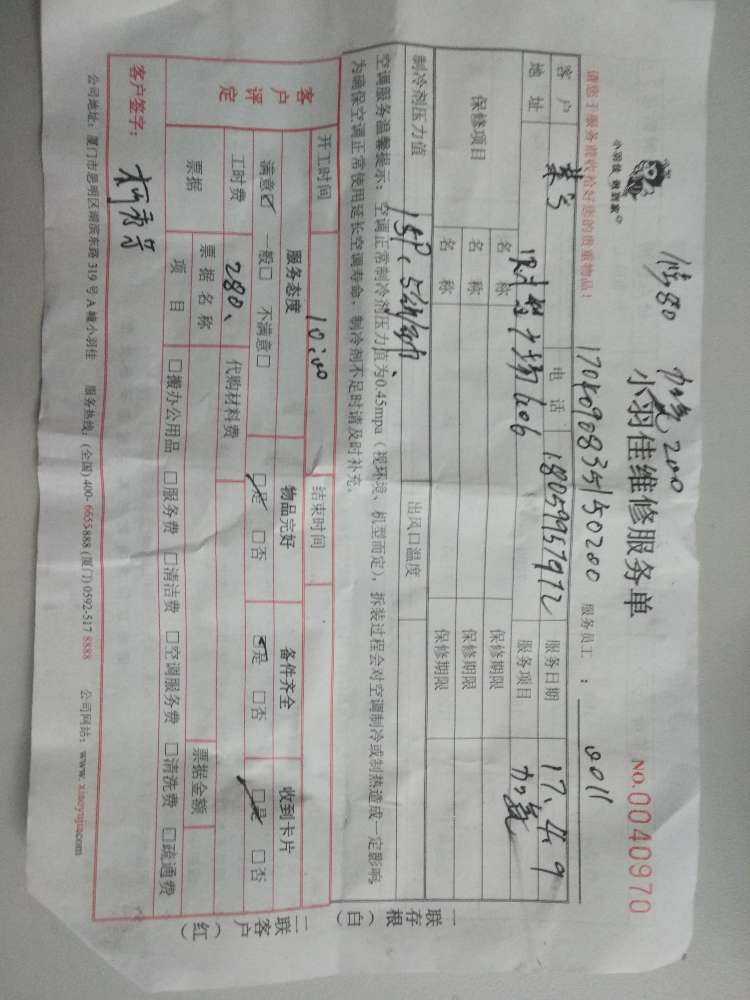 修80 加氟200
小羽佳 做到家
小羽佳维修服务单
NO.0040970
请您于服务前收拾好您的贵重物品!
1704090835150200 服务员工: 0011
客户 电话 18059957972 服务日期 17.4.9
地址 406 服务项目 加氟
保修项目 名称 保修期限
名称 保修期限
名称 保修期限
制冷剂压力值 出风口温度
空调服务温馨提示:空调正常制冷剂压力值为0.45mpa(视环境、机型而定),拆装过程会对空调制冷或制热造成一定影响,
为确保空调正常使用延长空调寿命,制冷剂不足时请及时补充。
开工时间 10:00 结束时间
客户评定 服务态度 物品完好 备件齐全 收到卡片
满意☑ 一般□ 不满意□ ☑是 □否 ☑是 □否 ☑是 □否
工时费 280. 代购材料费
票据 票据名称 票据金额
项目 □搬办公用品 □服务费 □清洁费 □空调服务费 □清洗费 □疏通费
客户签字:
公司地址:厦门市思明区湖滨东路319号A幢小羽佳 服务热线:(全国)400-6655888(厦门)0592-5178888 公司网站:www.xiaoyujia.com
一联存根(白)
二联客户(红)